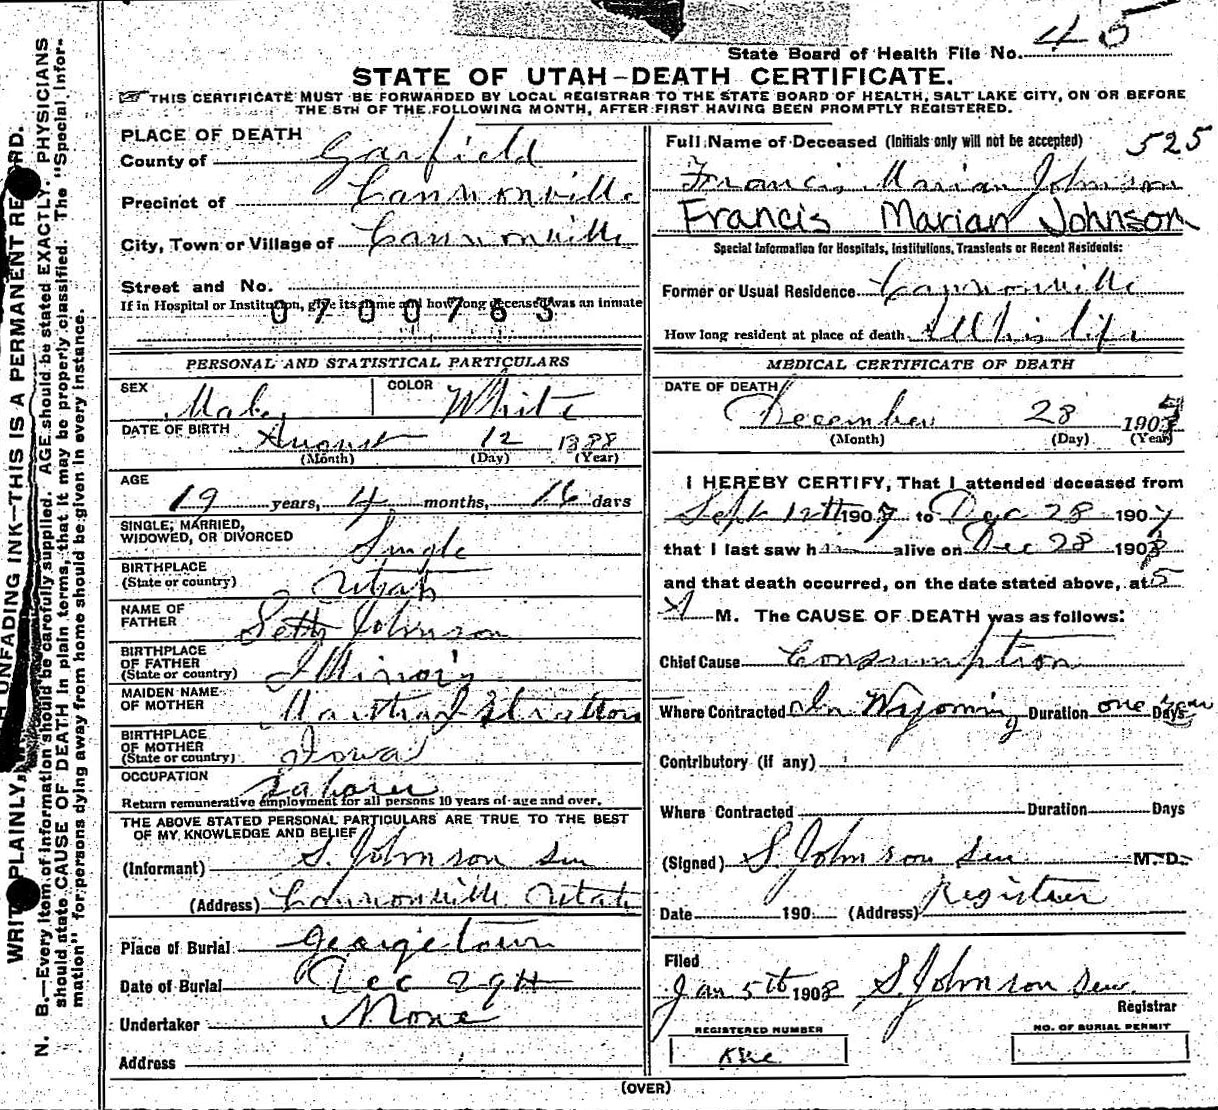 State Board of Health File No. 45
STATE OF UTAH—DEATH CERTIFICATE.
THIS CERTIFICATE MUST BE FORWARDED BY LOCAL REGISTRAR TO THE STATE BOARD OF HEALTH, SALT LAKE CITY, ON OR BEFORE
THE 5TH OF THE FOLLOWING MONTH, AFTER FIRST HAVING BEEN PROMPTLY REGISTERED.
PLACE OF DEATH
County of Garfield
Precinct of Cannonville
City, Town or Village of Cannonville
Street and No.
If in Hospital or Institution, give its name and how long deceased was an inmate
0700763
PERSONAL AND STATISTICAL PARTICULARS
SEX Male COLOR White
DATE OF BIRTH August 12 1888
(Month) (Day) (Year)
AGE
19 years, 4 months, 16 days
SINGLE, MARRIED,
WIDOWED, OR DIVORCED Single
BIRTHPLACE
(State or country) Utah
NAME OF
FATHER Seth Johnson
BIRTHPLACE
OF FATHER
(State or country) Illinois
MAIDEN NAME
OF MOTHER Martha J Stratton
BIRTHPLACE
OF MOTHER
(State or country) Iowa
OCCUPATION Laborer
Return remunerative employment for all persons 10 years of age and over.
THE ABOVE STATED PERSONAL PARTICULARS ARE TRUE TO THE BEST
OF MY KNOWLEDGE AND BELIEF
(Informant) S. Johnson Sen
(Address) Cannonville Utah
Place of Burial Georgetown
Date of Burial Dec 29th
Undertaker None
Address
Full Name of Deceased (Initials only will not be accepted) 525
Francis Marian Johnson
Francis Marian Johnson
Special Information for Hospitals, Institutions, Transients or Recent Residents:
Former or Usual Residence Cannonville
How long resident at place of death All his life
MEDICAL CERTIFICATE OF DEATH
DATE OF DEATH
December 28 1907
(Month) (Day) (Year)
I HEREBY CERTIFY, That I attended deceased from
Sept 12th 1907 to Dec 28 1907
that I last saw him alive on Dec 28 1907
and that death occurred, on the date stated above, at 5
A M. The CAUSE OF DEATH was as follows:
Chief Cause Consumption
Where Contracted In Wyoming Duration one year Days
Contributory (if any)
Where Contracted Duration Days
(Signed) S. Johnson Sen M. D.
Date 190 (Address) Registrar
Filed
Jan 5th 1908 S. Johnson Sen.
Registrar
REGISTERED NUMBER
NO. OF BURIAL PERMIT
(OVER)
WRITE PLAINLY, WITH UNFADING INK—THIS IS A PERMANENT RECORD.
N. B.—Every item of information should be carefully supplied. AGE should be stated EXACTLY. PHYSICIANS
should state CAUSE OF DEATH in plain terms, that it may be properly classified. The "Special Infor-
mation" for persons dying away from home should be given in every instance.